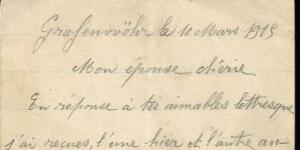 Grafenvöhr le 10 Mars 1915
Mon épouse chérie
En réponse à tes aimables lettres que
j'ai reçues, l'une hier et l'autre au-